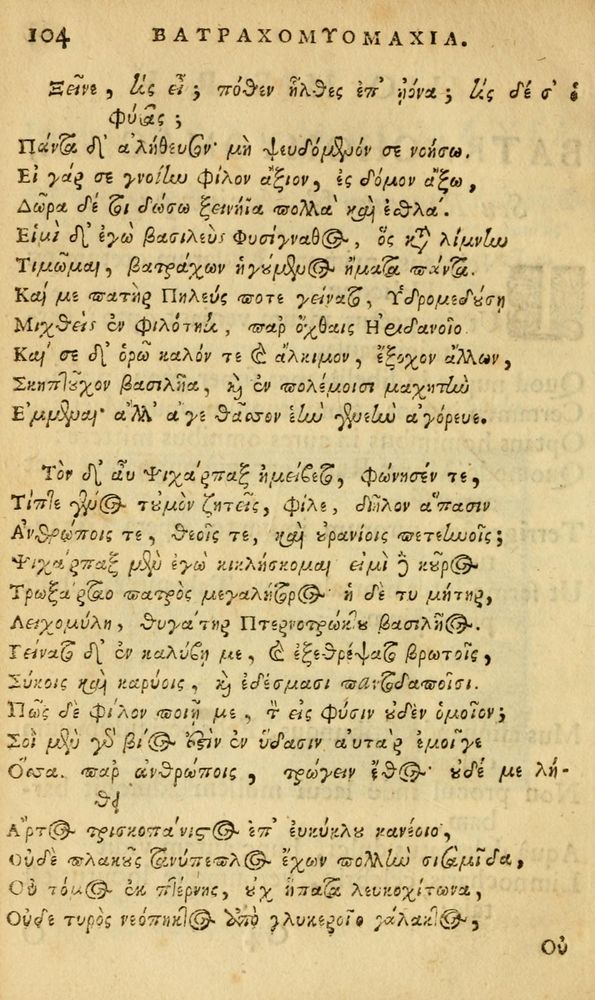 104 ΒΑΤΡΑΧΟΜΥΟΜΑΧΙΑ.
Ξεῖνε, τίς εἶ; πόθεν ἦλθες ἐπ' ἠϊόνα; τίς δέ σ' ὁ
φύσας;
Πάντα δ' ἀλήθευσον· μὴ ψευδόμενόν σε νοήσω.
Εἰ γάρ σε γνοίην φίλον ἄξιον, ἐς δόμον ἄξω,
Δῶρα δέ τοι δώσω ξεινήϊα πολλὰ καὶ ἐσθλά.
Εἰμὶ δ' ἐγὼ βασιλεὺς Φυσίγναθος, ὃς κατὰ λίμνην
Τιμῶμαι, βατράχων ἡγούμενος ἤματα πάντα.
Καί με πατὴρ Πηλεύς ποτε γείνατο, Ὑδρομεδούσῃ
Μιχθεὶς ἐν φιλότητι, παρ' ὄχθαις Ἠριδανοῖο
Καί σε δ' ὁρῶ καλόν τε καὶ ἄλκιμον, ἔξοχον ἄλλων,
Σκηπτοῦχον βασιλῆα, καὶ ἐν πολέμοισι μαχητὴν
Ἔμμεναι· ἀλλ' ἄγε θᾶσσον ἑὴν γενεὴν ἀγόρευε.
Τὸν δ' αὖ Ψιχάρπαξ ἠμείβετο, φώνησέν τε,
Τίπτε γένος τοὐμὸν ζητεῖς, φίλε, δῆλον ἅπασιν
Ἀνθρώποις τε, θεοῖς τε, καὶ οὐρανίοις πετεηνοῖς;
Ψιχάρπαξ μὲν ἐγὼ κικλήσκομαι· εἰμὶ δὲ κοῦρος
Τρωξάρταο πατρὸς μεγαλήτορος· ἡ δέ τυ μήτηρ,
Λειχομύλη, θυγάτηρ Πτερνοτρώκτου βασιλῆος.
Γείνατο δ' ἐν καλύβῃ με, καὶ ἐξεθρέψατο βρωτοῖς,
Σύκοις καὶ καρύοις, καὶ ἐδέσμασι παντοδαποῖσι.
Πῶς δὲ φίλον ποιῇ με, τὸν εἰς φύσιν οὐδὲν ὁμοῖον;
Σοὶ μὲν γὰρ βίος ἐστὶν ἐν ὕδασιν· αὐτὰρ ἔμοιγε
Ὅσσα παρ' ἀνθρώποις, τρώγειν ἔθος· οὐδέ με λή-
θει
Ἄρτος τρισκοπάνιστος ἐπ' εὐκύκλου κανέοιο,
Οὐδὲ πλακοῦς τανύπεπλος ἔχων πολλὴν σισαμῖδα,
Οὐ τόμος ἐκ πτέρνης, οὐχ ἥπατα λευκοχίτωνα,
Οὐδὲ τυρὸς νεόπηκτος ἀπὸ γλυκεροῖο γάλακτος,
Οὐ